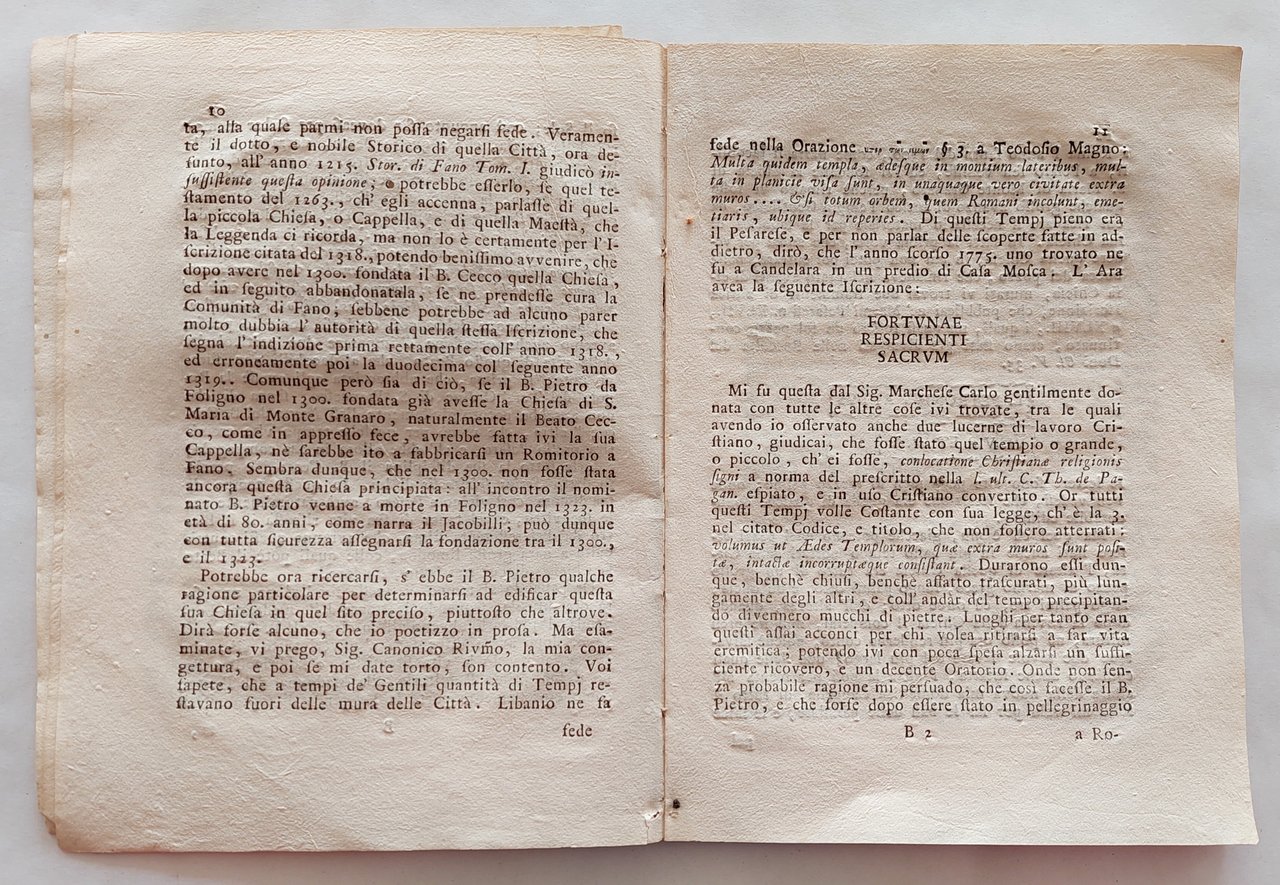 10
ta, alla quale parmi non possa negarsi fede. Veramen-
te il dotto, e nobile Storico di quella Città, ora de-
funto, all' anno 1215. Stor. di Fano Tom. I. giudicò in-
sussistente questa opinione; e potrebbe esserlo, se quel te-
stamento del 1263., ch' egli accenna, parlasse di quel-
la piccola Chiesa, o Cappella, e di quella Maestà, che
la Leggenda ci ricorda, ma non lo è certamente per l' I-
scrizione citata del 1318., potendo benissimo avvenire, che
dopo avere nel 1300. fondata il B. Cecco quella Chiesa,
ed in seguito abbandonatala, se ne prendesse cura la
Comunità di Fano; sebbene potrebbe ad alcuno parer
molto dubbia l' autorità di quella stessa Iscrizione, che
segna l' indizione prima rettamente coll' anno 1318.,
ed erroneamente poi la duodecima col seguente anno
1319.. Comunque però sia di ciò, se il B. Pietro da
Foligno nel 1300. fondata già avesse la Chiesa di S.
Maria di Monte Granaro, naturalmente il Beato Cec-
co, come in appresso fece, avrebbe fatta ivi la sua
Cappella, nè sarebbe ito a fabbricarsi un Romitorio a
Fano. Sembra dunque, che nel 1300. non fosse stata
ancora questa Chiesa principiata: all' incontro il nomi-
nato B. Pietro venne a morte in Foligno nel 1323. in
età di 80. anni, come narra il Jacobilli; può dunque
con tutta sicurezza assegnarsi la fondazione tra il 1300.,
e il 1323.
Potrebbe ora ricercarsi, s' ebbe il B. Pietro qualche
ragione particolare per determinarsi ad edificar questa
sua Chiesa in quel sito preciso, piuttosto che altrove.
Dirà forse alcuno, che io poetizzo in prosa. Ma esa-
minate, vi prego, Sig. Canonico Rivm̃o, la mia con-
gettura, e poi se mi date torto, son contento. Voi
sapete, che a tempi de' Gentili quantità di Tempj re-
stavano fuori delle mura delle Città. Libanio ne fa
fede
11
fede nella Orazione § 3. a Teodosio Magno:
Multa quidem templa, ædesque in montium lateribus, mul-
ta in planicie visa sunt, in unaquaque vero civitate extra
muros.... &si totum orbem, quem Romani incolunt, eme-
tiaris, ubique id reperies. Di questi Tempj pieno era
il Pesarese, e per non parlar delle scoperte fatte in ad-
dietro, dirò, che l' anno scorso 1775. uno trovato ne
fu a Candelara in un predio di Casa Mosca. L' Ara
avea la seguente Iscrizione:
FORTVNAE
RESPICIENTI
SACRVM
Mi fu questa dal Sig. Marchese Carlo gentilmente do-
nata con tutte le altre cose ivi trovate, tra le quali
avendo io osservato anche due lucerne di lavoro Cri-
stiano, giudicai, che fosse stato quel tempio o grande,
o piccolo, ch' ei fosse, conlocatione Christianæ religionis
signi a norma del prescritto nella l. ult. C. Th. de Pa-
gan. espiato, e in uso Cristiano convertito. Or tutti
questi Tempj volle Costante con sua legge, ch' è la 3.
nel citato Codice, e titolo, che non fossero atterrati:
volumus ut Ædes Templorum, quæ extra muros sunt posi-
tæ, intactæ incorruptæque consistant. Durarono essi dun-
que, benchè chiusi, benchè affatto trascurati, più lun-
gamente degli altri, e coll' andar del tempo precipitan-
do divennero mucchi di pietre. Luoghi per tanto eran
questi assai acconci per chi volea ritirarsi a far vita
eremitica; potendo ivi con poca spesa alzarsi un suffi-
ciente ricovero, e un decente Oratorio. Onde non sen-
za probabile ragione mi persuado, che così facesse il B.
Pietro, e che forse dopo essere stato in pellegrinaggio
B 2
a Ro-